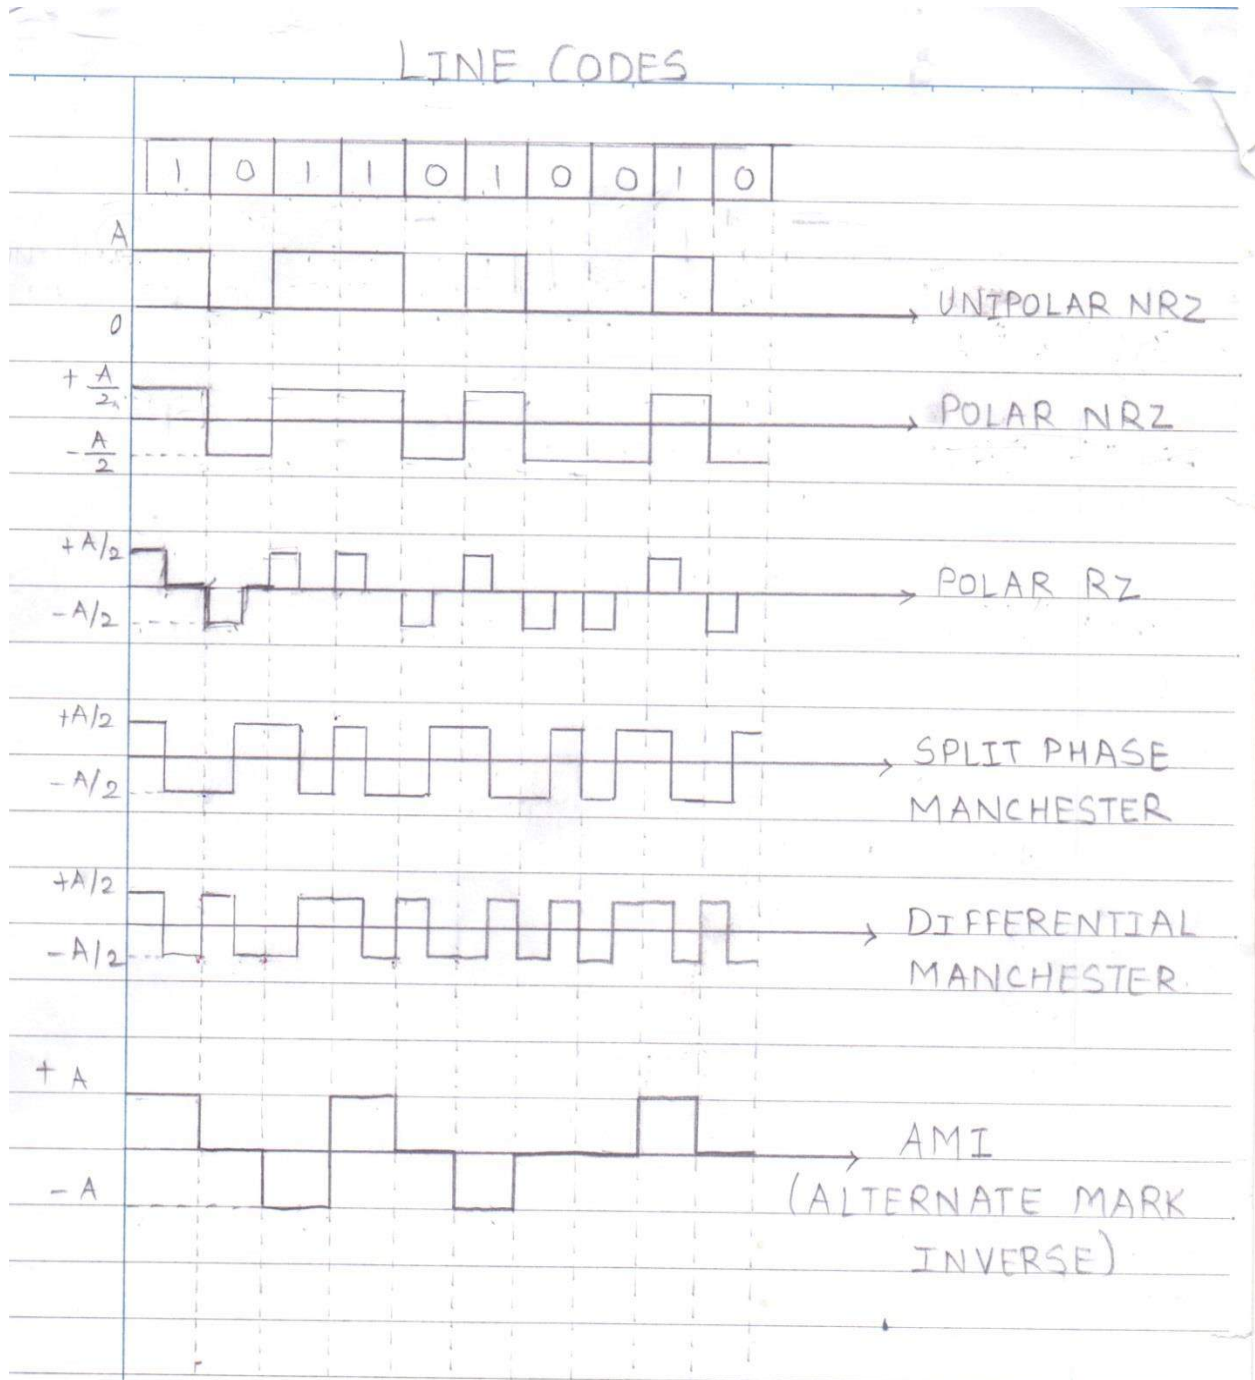 LINE CODES
1 0 1 1 0 1 0 0 1 0
A
0
UNIPOLAR NRZ
+ A/2
- A/2
POLAR NRZ
+A/2
-A/2
POLAR RZ
+A/2
-A/2
SPLIT PHASE
MANCHESTER
+A/2
-A/2
DIFFERENTIAL
MANCHESTER
+ A
- A
AMI
(ALTERNATE MARK
INVERSE)